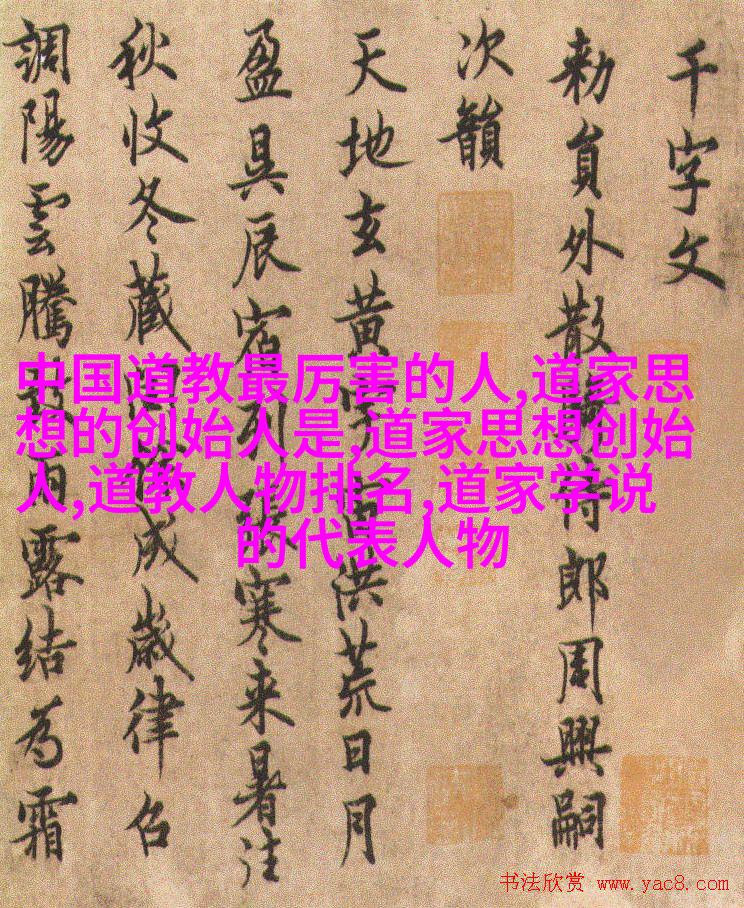 千字文
勅員外散騎侍郎周興嗣
次韻
天地玄黃宇宙洪荒日月
盈昃辰宿列張寒来暑往
秋收冬藏閏餘成歲律召
調陽雲騰致雨露結為霜
中国道教最厉害的人,道家思
想的创始人是,道家思想创始
人,道教人物排名,道家学说
的代表人物
书法欣赏 www.yac8.com